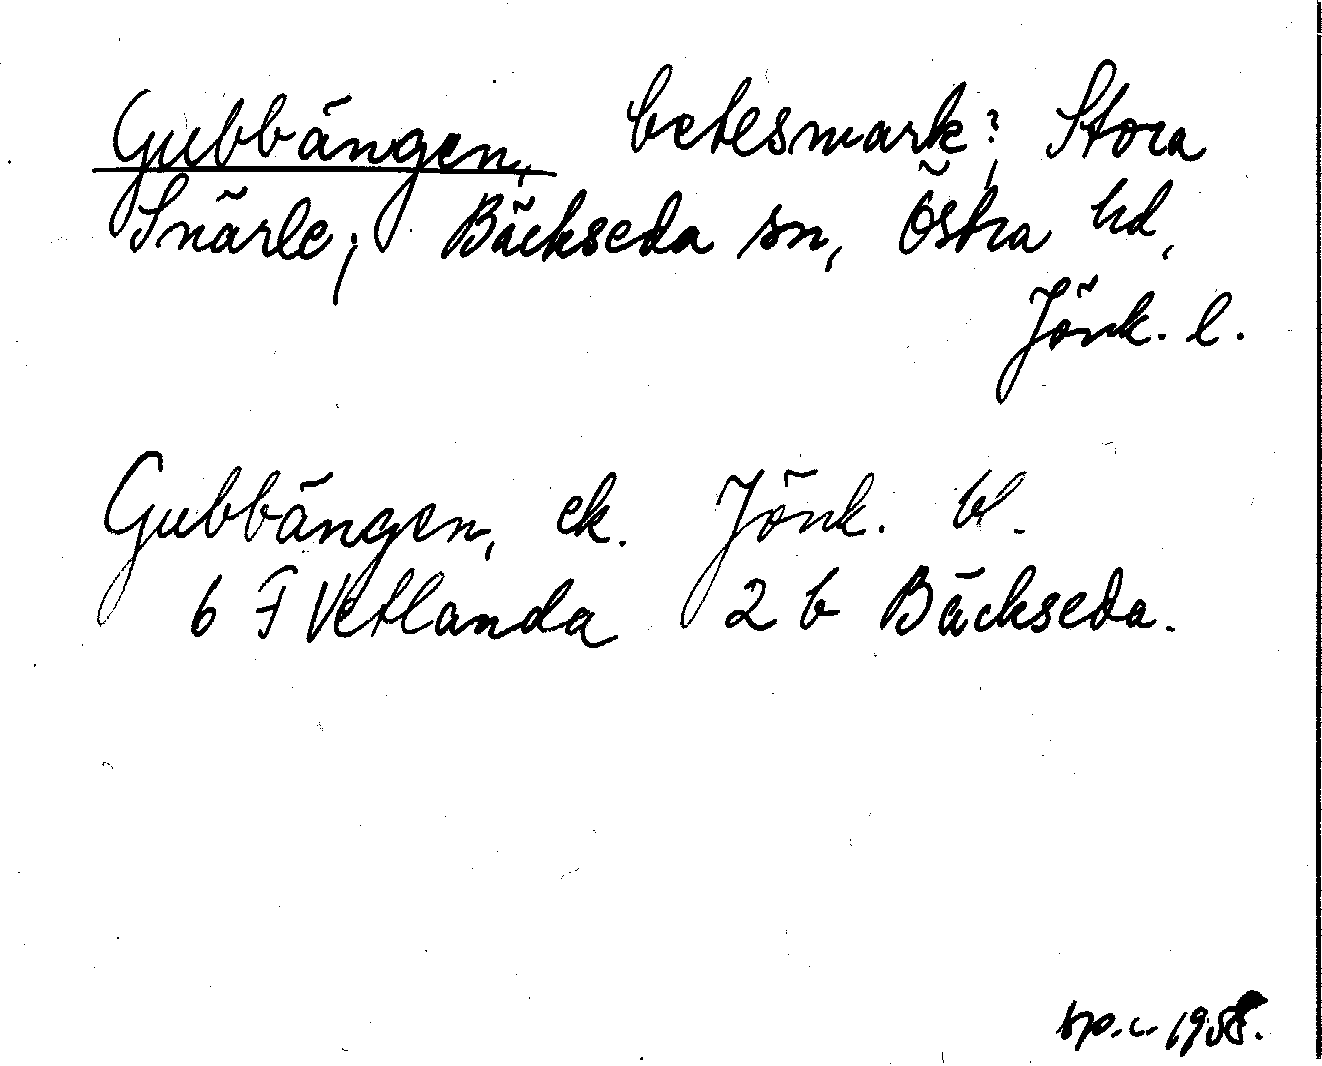 Gubbängen, betesmark?, Stora
Snärle, Bäckseda sn, Östra hd,
Jönk. l.
Gubbängen, ek. Jönk. bl.
6 F Vetlanda 2 b Bäckseda.
1958.